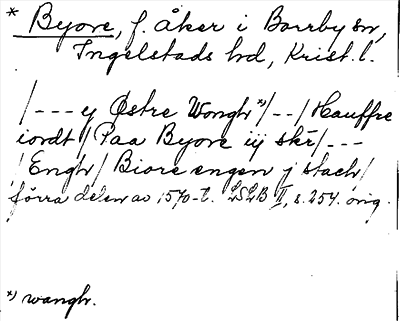 * Byore, f. åker i Borrby sn,
Ingelstads hd, Krist. l.
/--- y Østre Wongh *)/--/Hauffre
iordt/Paa Byore iij skr/---
/Engh/Biore engen j stach/
förra delen av 1570-t. LSLB II, s. 254. orig.
*) wangh.